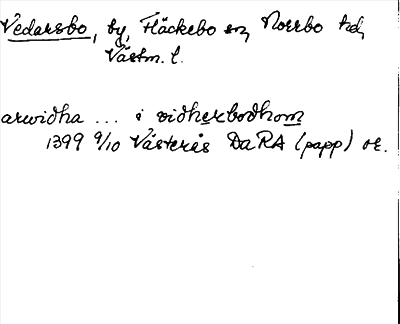 Vedarsbo, by, Fläckebo sn, Norrbo hd,
Västm. l.
arwidha ... i vidherbodhom
1399 9/10 Västerås DaRA (papp) or.